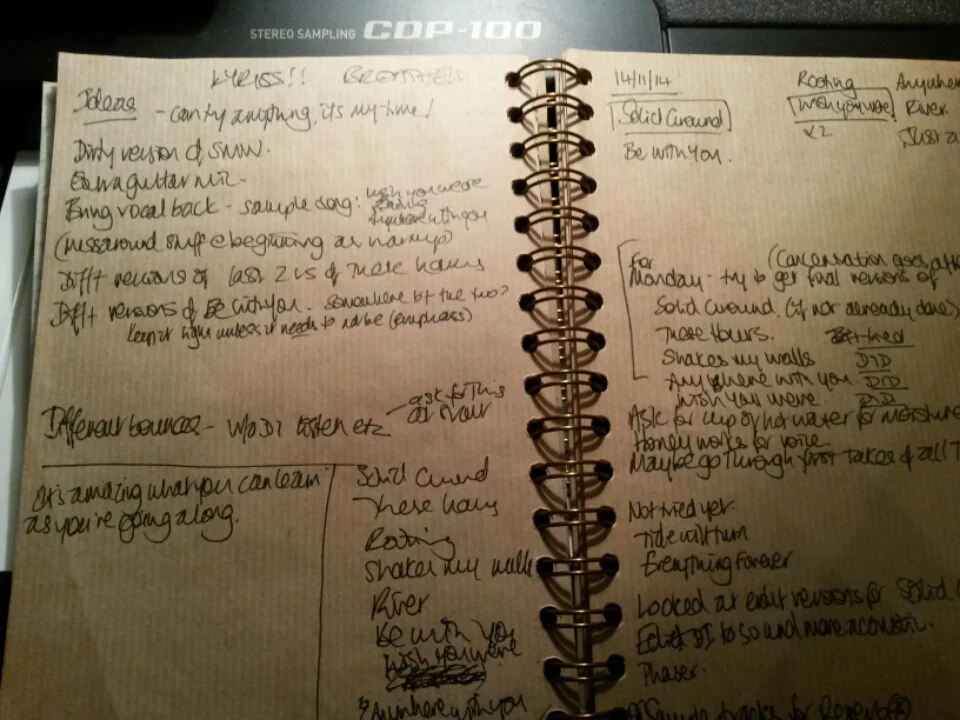 STEREO SAMPLING CDP-100
LYRISS!! BREATHE!!
Ideas - can try anything, its my time!
Dirty version of SMW.
Extra guitar
Bring vocal back - sample song: wish you were
Rooting
Anywhere with you
(mess around stuff @ beginning as warmup)
Diff't versions of last 2 vs of These hours
Diff't versions of Be with you. Somewhere b/t the two?
Keep it light unless it needs to not be (emphasis)
Different bounces - w/o D1 listen etc
ask for this
as I hour
It's amazing what you can learn
as you're going along.
Solid Ground
These hours
Rooting
Shakes my walls
River
Be with you
Wish you were
Anywhere with you
14/11/14
Solid Ground
Be with you.
Rooting
Wish you were
x2
Anywhere
River
Just a
For
(Concentration goes after
Monday - try to get final versions of
Solid Ground (if not already done)
These hours.
Shakes my walls DID
Anywhere with you. DID
Wish you were. DID
Ask for cup of hot water for moisture
Honey works for voice
Maybe go through first takes of all
Not tired yet.
Tide will turn
Everything Forever
Looked at edit versions for Solid
Edit to sound more acoustic.
Phaser.
Sample tracks for